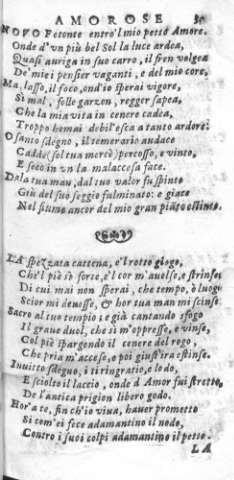 AMOROSE
NOVO Fetonte entro'l mio petto Amore.
Onde d'vn più bel Sol la luce ardea,
Quasi auriga in suo carro, il fren volgea
De' miei pensier vaganti, e del mio core,
Ma, lasso, il foco, ond'io sperai vigore,
Sì mal, folle garzon, regger sapea,
Che la mia vita in cenere cadea,
Troppo hemai debil'esca a tanto ardore:
O santo sdegno, il temerario audace
Cadde (sol tua mercè) percosso, e vinto,
E seco in vn la mal accesa face.
Da la tua man, dal tuo valor fu spinto
Giù del suo seggio fulminato: e giace
Nel fiume ancor del mio gran pianto estinto.
LA spezzata cattena, e'l rotto giogo,
Che'l piè sì forte, e'l cor m'auolse, e strinse,
Di cui mai non sperai, che tempo, ò luogo
Scior mi deuesse, & hor tua man mi scinse:
Sacro al tuo tempio; e già cantando sfogo
Il graue duol, che sì m'oppresse, e vinse,
Col piè spargendo il cenere del rogo,
Che pria m'accese, e poi giust'ira estinse.
Inuitto sdegno, i ti ringratio, e lodo,
E sciolto il laccio, onde d'Amor fui stretto,
De l'antica prigion libero godo.
Hor'a te, fin ch'io viua, hauer prometto
Si com'ei fece adamantino il nodo,
Contro i suoi colpi adamantino il petto.
LA